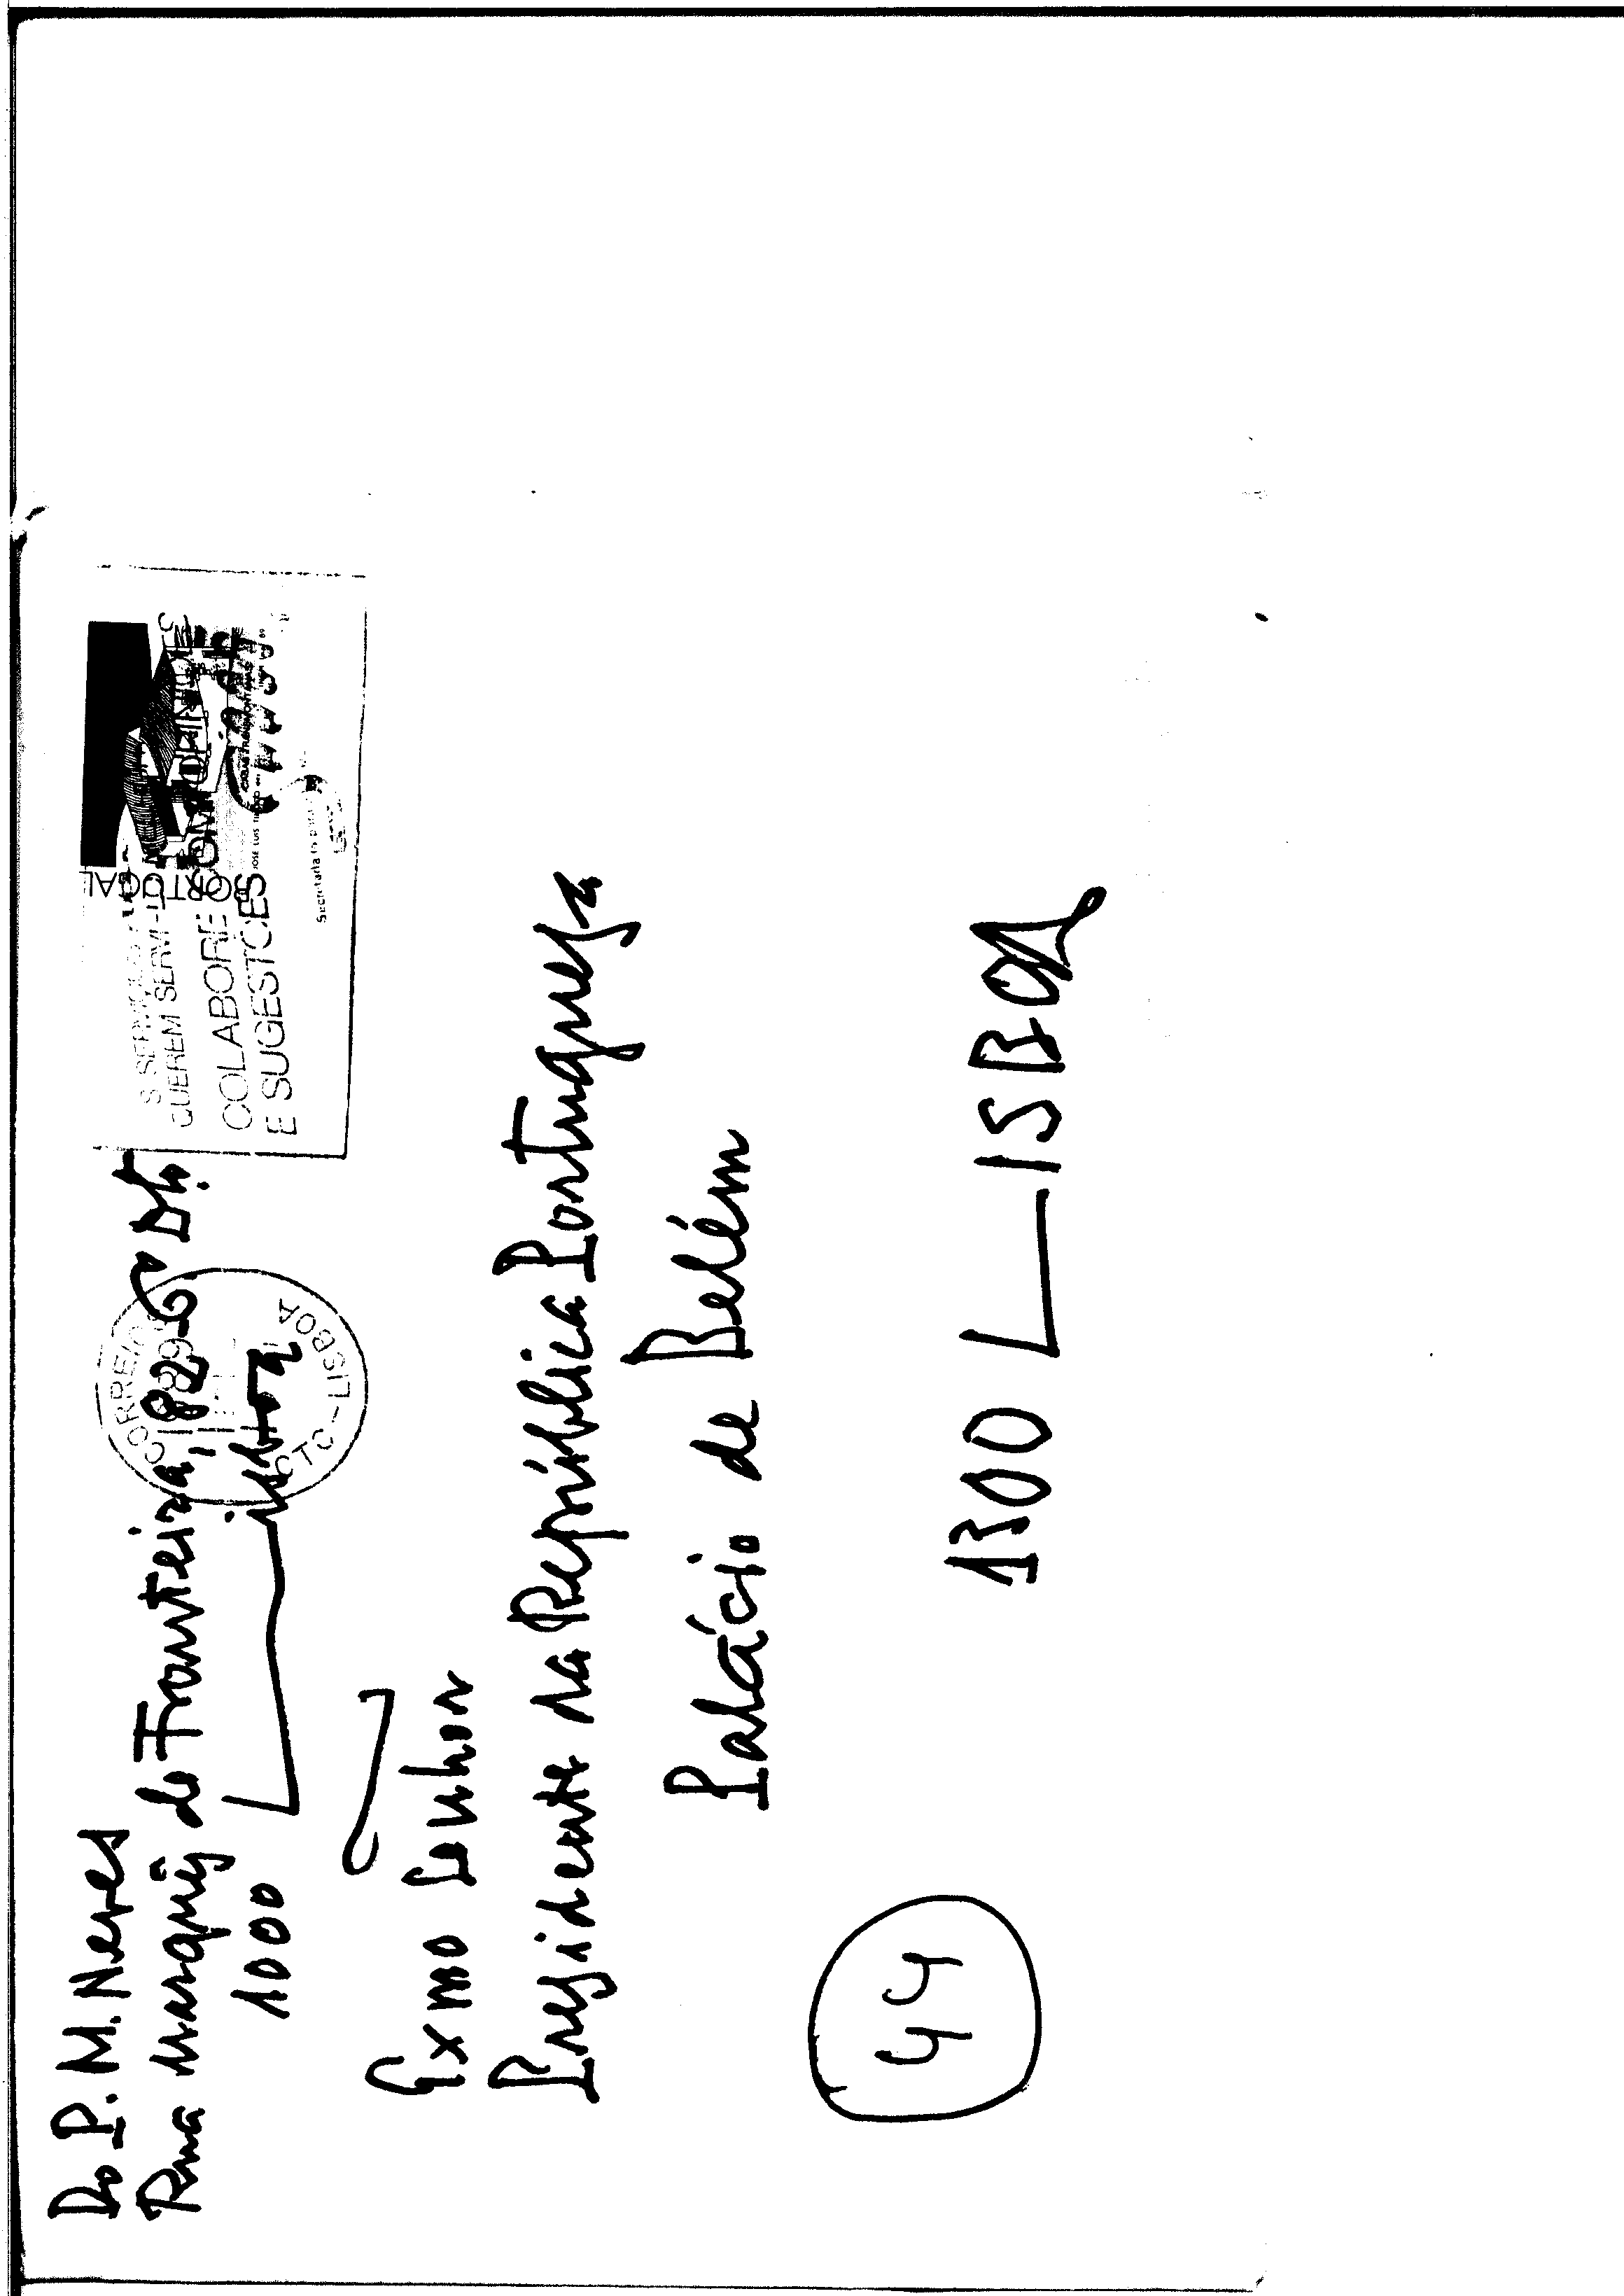 Do P. M. Neves
Rua Marquês de Fronteira, 82 6º Dtº.
1000 Lisboa
Exmo Senhor
Presidente da República Portuguesa
Palácio de Belém
1300 LISBOA
44
CORREIOS
CTC - LISBOA
QUEREM SERVI-LO
COLABORE COM OPINIÕES
E SUGESTÕES
PORTUGAL